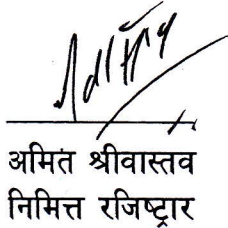 अमित श्रीवास्तव
निमित्त रजिष्ट्रार